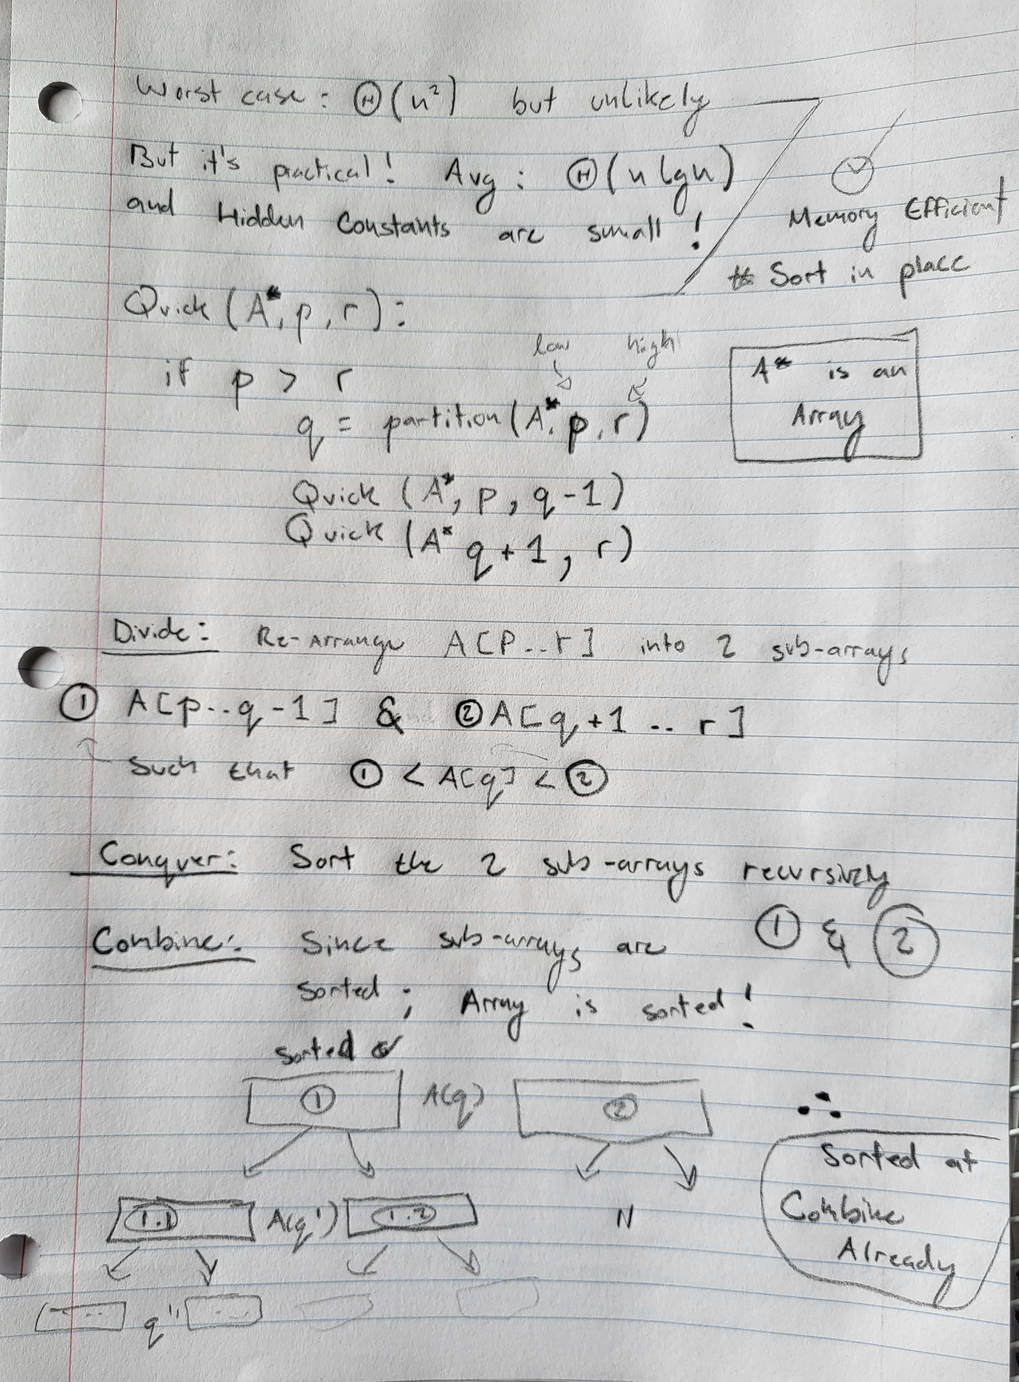 Worst case: Θ(n²) but unlikely
But it's practical! Avg: Θ(n lgn)
and Hidden Constants are small!
Memory Efficient
* Sort in place
Quick(A*, p, r):
low high
if p > r
q = partition(A*, p, r)
A* is an
Array
Quick (A*, p, q-1)
Quick (A* q+1, r)
Divide: Re-Arrange A[P..r] into 2 sub-arrays
① A[p..q-1] & ② A[q+1 .. r]
Such that ① < A[q] < ②
Conquer: Sort the 2 sub-arrays recursively
① & ②
Combine: Since sub-arrays are
sorted; Array is sorted!
Sorted ✓
① A(q) ②
∴
Sorted at
Combine
Already
1.1 A(q') 1.2 N
q''